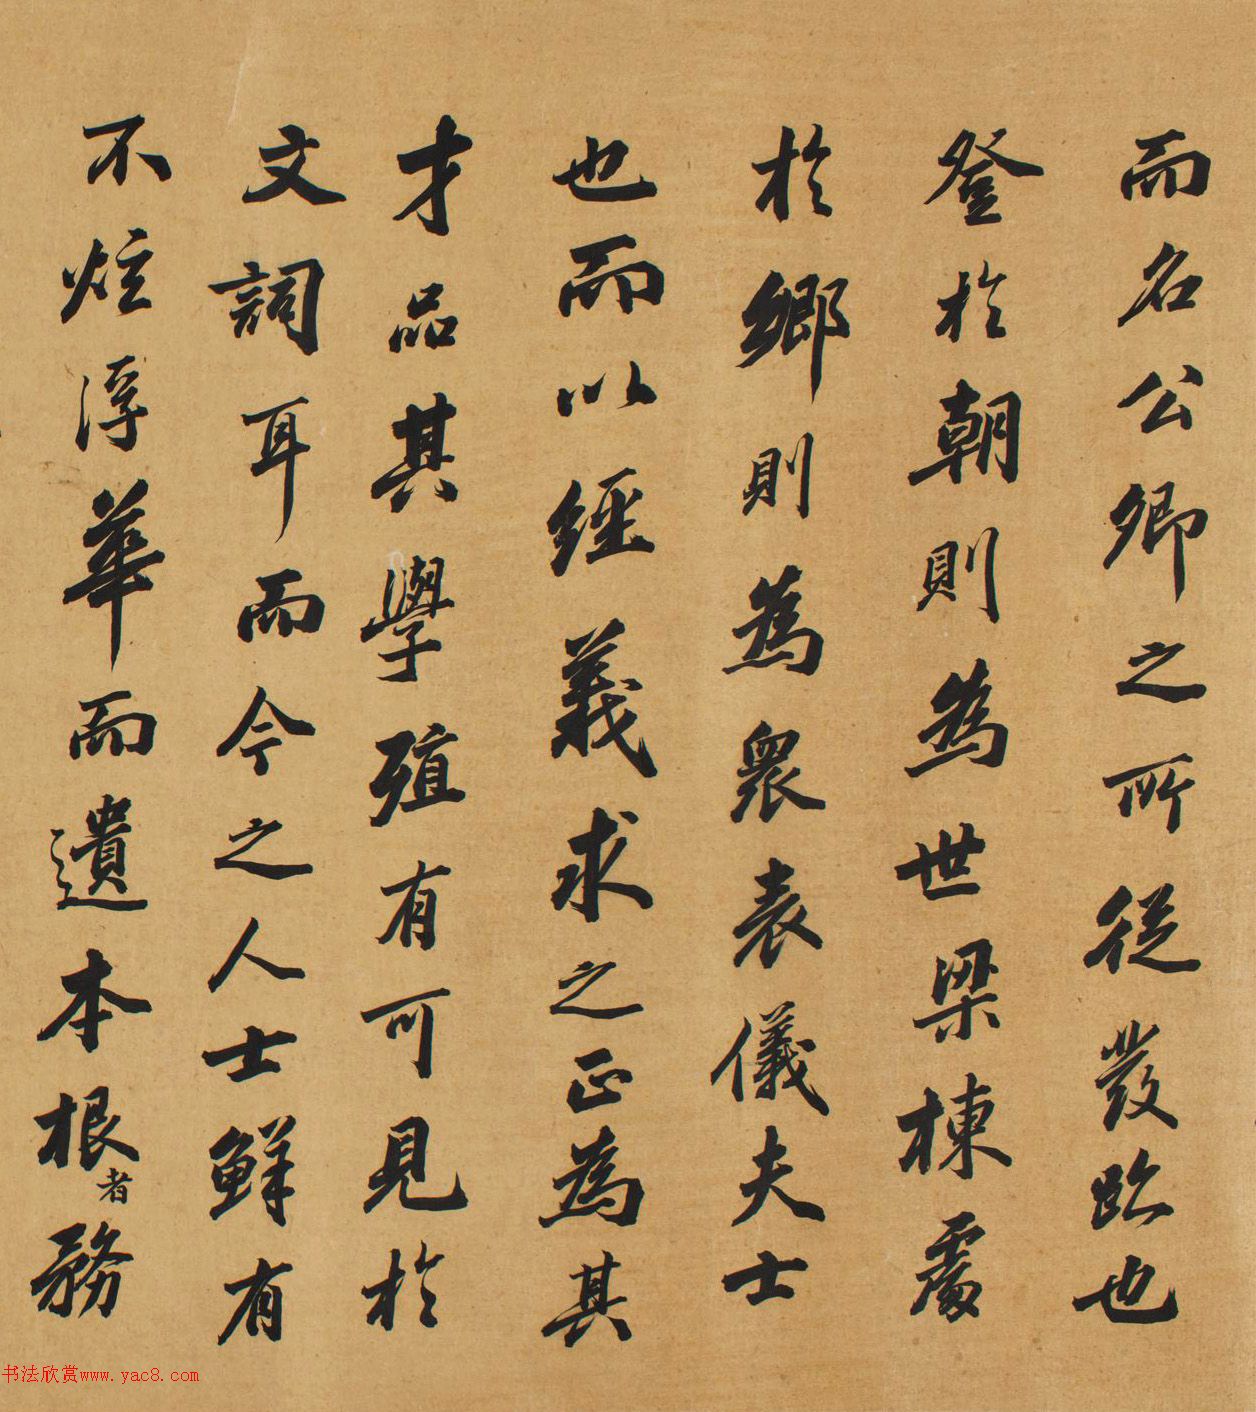 而名公卿之所從發跡也
登於朝則為世梁棟處
於鄉則為眾表儀夫士
也而以經義求之正為其
才品其學殖有可見於
文詞耳而今之人士鮮有
不炫浮華而遺本根者務
书法欣赏www.yac8.com